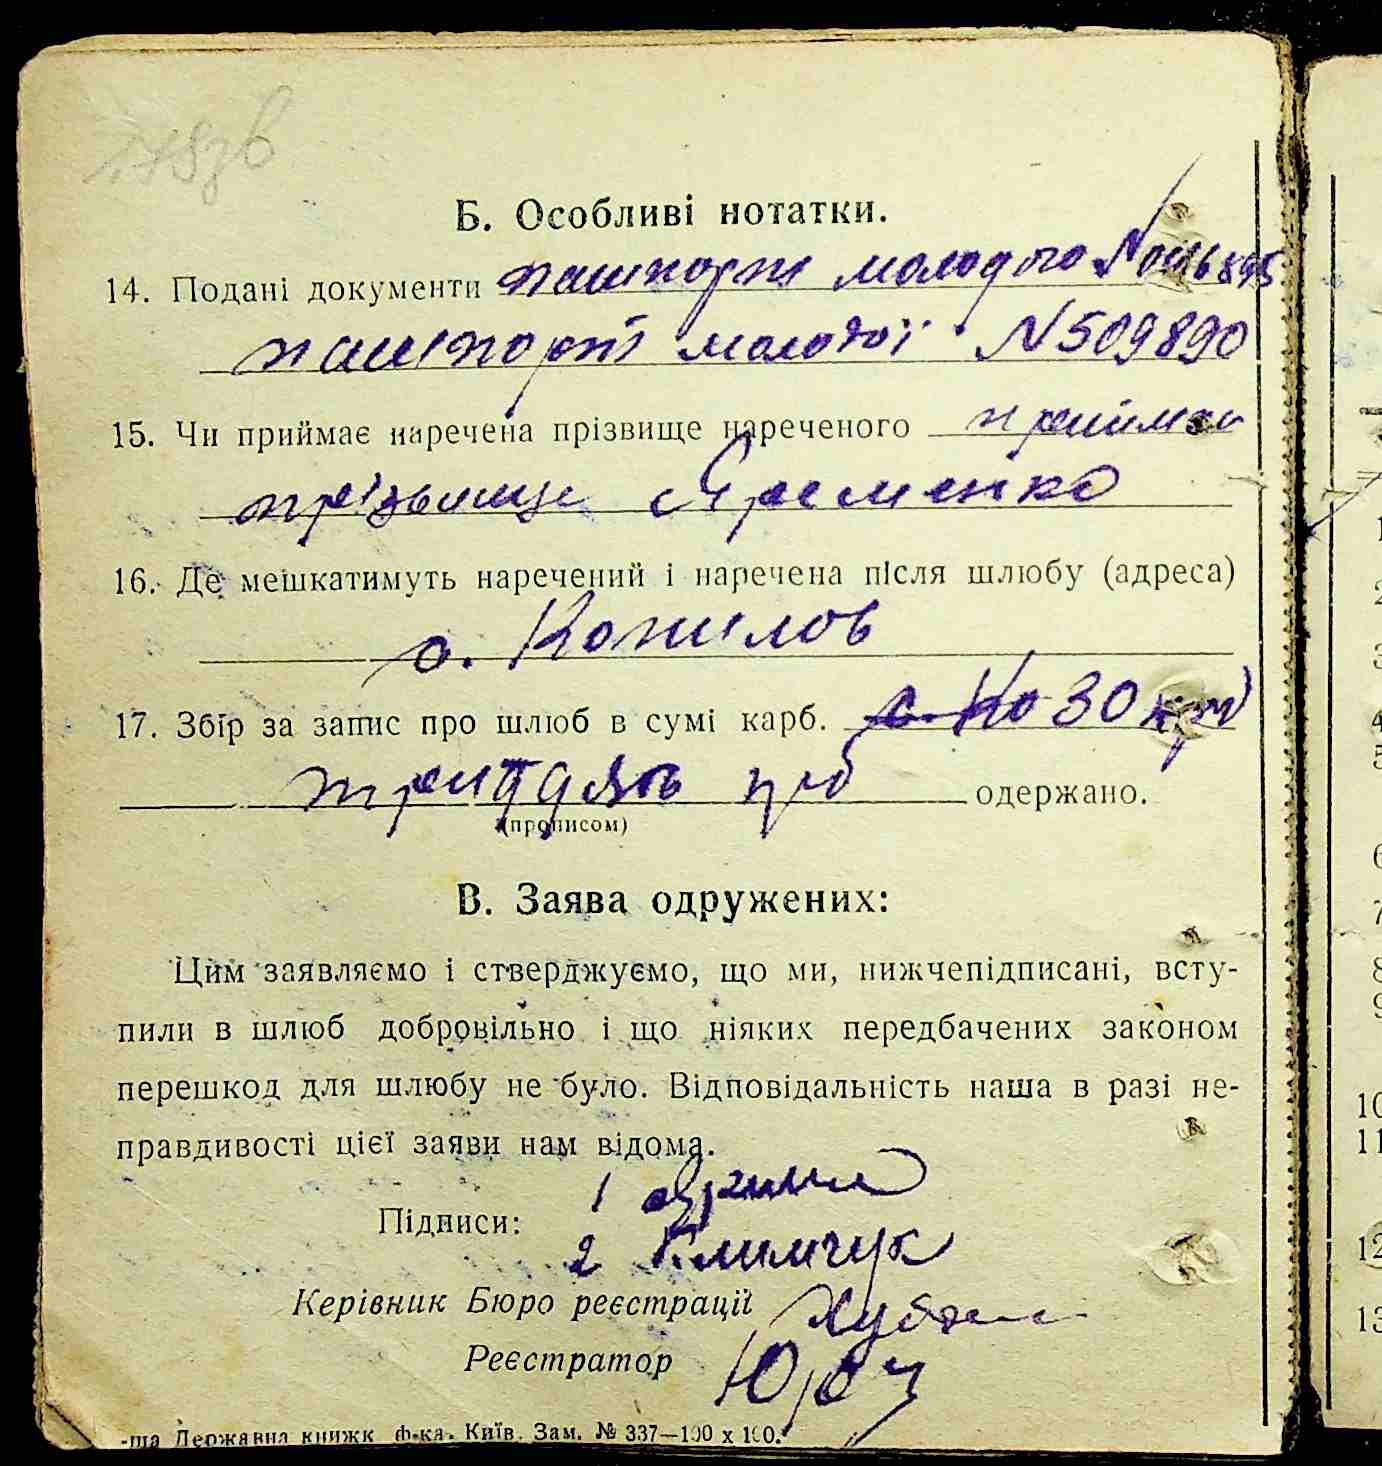 Б. Особливі нотатки.
14. Подані документи пашпорт молодого №
пашпорт молодої №509890
15. Чи приймає наречена прізвище нареченого приймаю
прізвище Яременко
16. Де мешкатимуть наречений і наречена після шлюбу (адреса)
с. Копилов
17. Збір за запис про шлюб в сумі карб. 30
тридцять крб одержано.
(прописом)
В. Заява одружених:
Цим заявляємо і стверджуємо, що ми, нижчепідписані, всту-
пили в шлюб добровільно і що ніяких передбачених законом
перешкод для шлюбу не було. Відповідальність наша в разі не-
правдивості цієї заяви нам відома.
1
Підписи:
2 Климчук
Керівник Бюро реєстрації
Реєстратор
-ша Державна книжк. ф-ка. Київ. Зам. № 337—100 х 100.